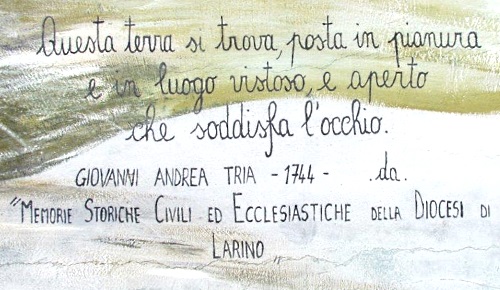 Questa terra si trova, posta in pianura
e in luogo vistoso, e aperto
che soddisfa l'occhio.
GIOVANNI ANDREA TRIA - 1744 - da.
"MEMORIE STORICHE CIVILI ED ECCLESIASTICHE DELLA DIOCESI DI
LARINO"